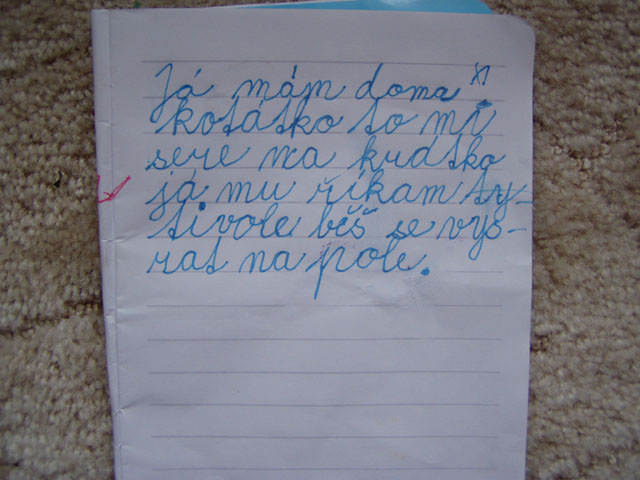 Já mám doma
kotátko to mi
sere na krátko
já mu říkam ty-
ti vole běš se vys-
rat na pole.